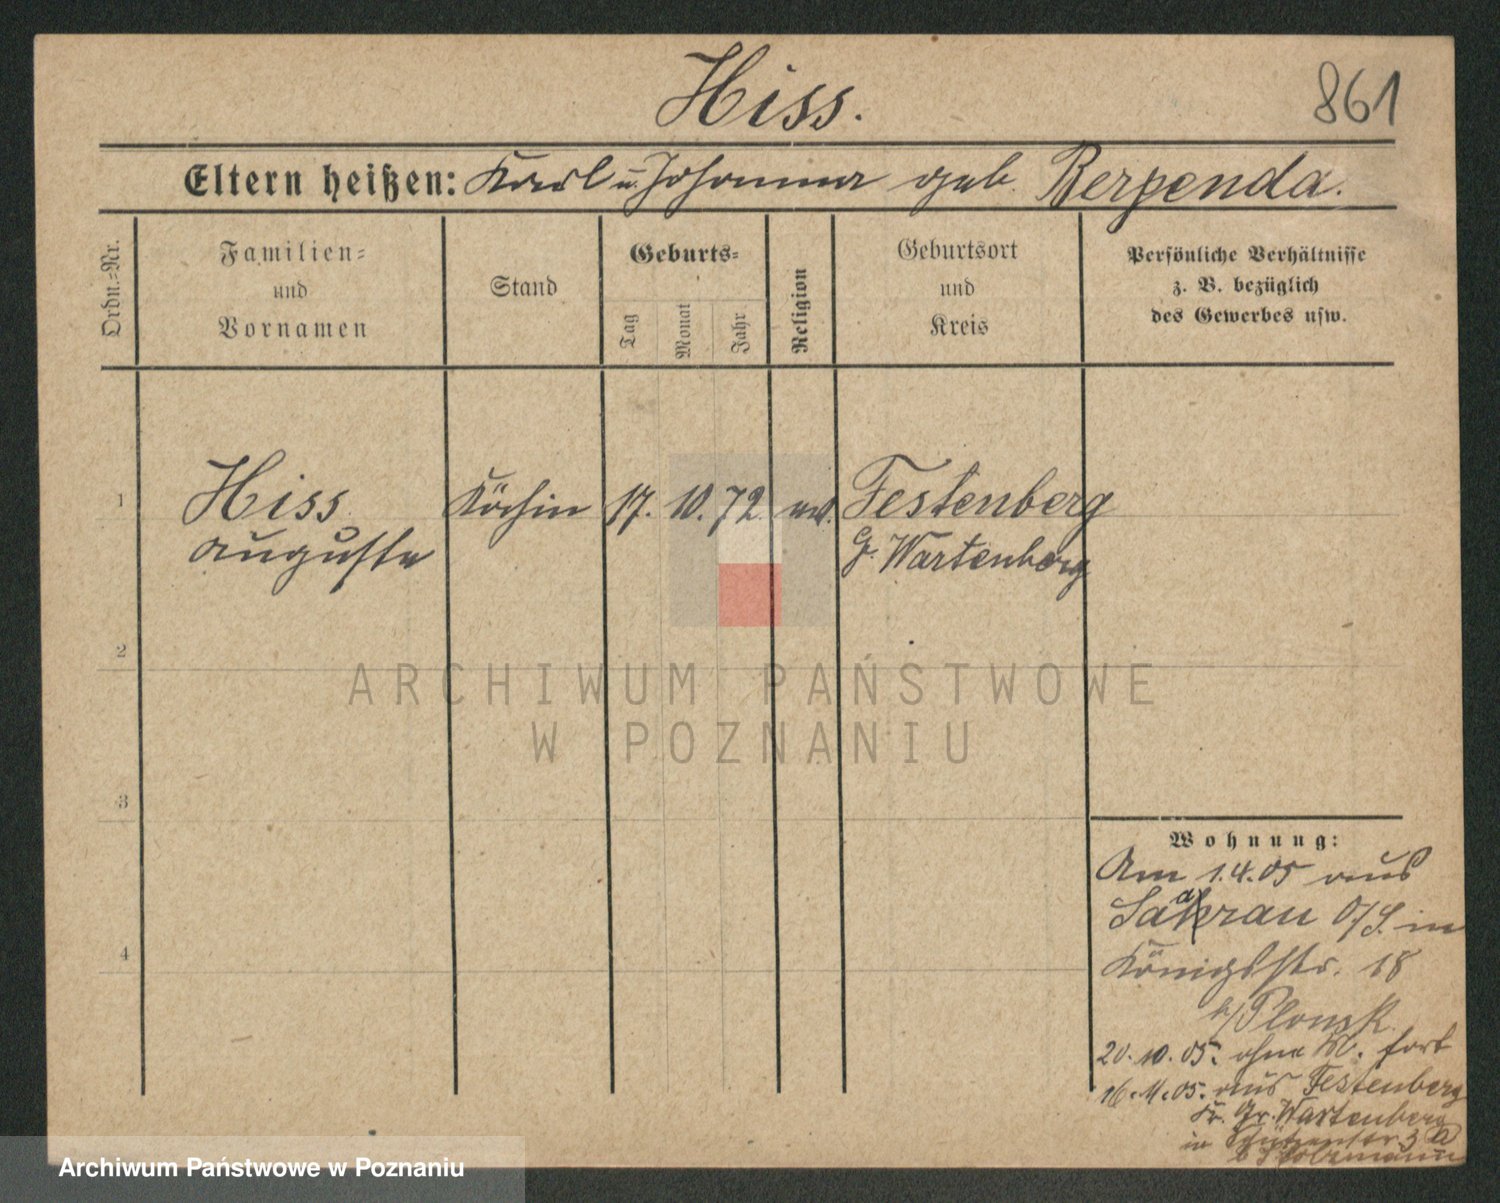 Hiss.
861
Eltern heißen: Karl u. Johanna geb. Rerpenda.
Ordn.=Nr.
Familien=
und
Vornamen
Stand
Geburts=
Tag
Monat
Jahr
Religion
Geburtsort
und
Kreis
Persönliche Verhältnisse
z. B. bezüglich
des Gewerbes usw.
1
Hiss
Auguste
Köchin
17. 10. 72.
ev.
Festenberg
G. Wartenberg
2
3
4
Wohnung:
Am 1.4.05 aus
Sakrau O/S. in
Königsstr. 18
b/Plonsk
20. 10. 05. ohne M. fort
16. 11. 05. aus Festenberg
Kr. Gr. Wartenberg
in Schützenstr. 3 a
ARCHIWUM PAŃSTWOWE
W POZNANIU
Archiwum Państwowe w Poznaniu